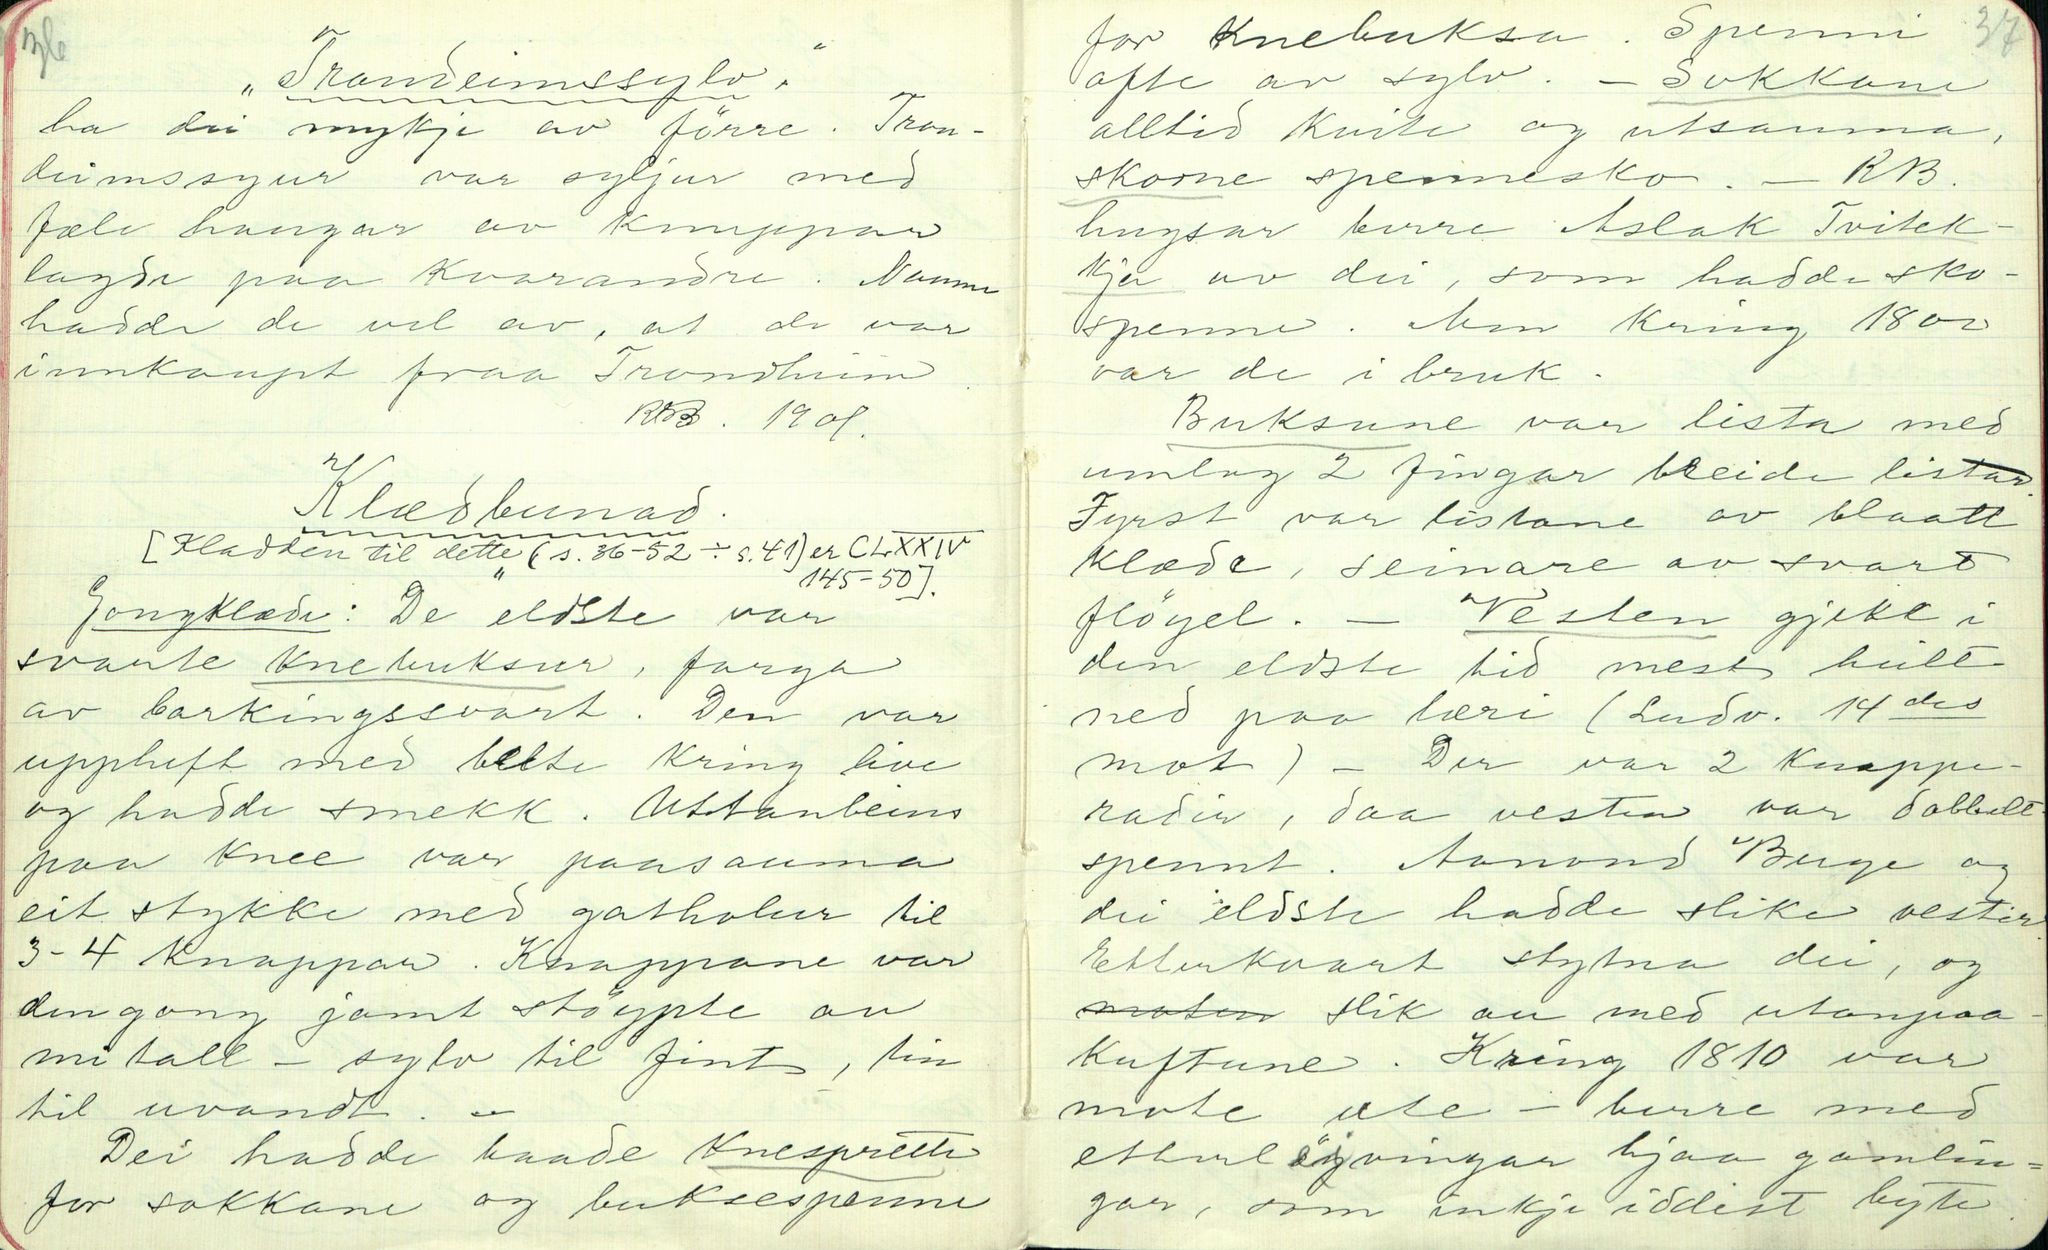 36
„Trondeimssylv."
ha dei mykje av förre. Tron-
deimssyur var syljur med
fæle haugar av knuppar
lagde paa kvarandre. Namne
hadde de vel av, at de var
innkaupt fraa Trondheim.
RB. 1909.
Klædbunad.
[Kladden til dette (s. 36-52 ÷ s. 41) er CLXXIV
145-50].
Gongklæde: De eldste var
svarte knebuksur, farga
av barkingssvart. Den var
uppheft med belte kring live
og hadde smekk. Uttanbeins
paa knee var paasauma
eit stykke med gatholur til
3-4 knappar. Knappane var
dengong jamt støypte av
metall - sylv til fint, tin
til uvandt. -
Dei hadde baade knesprette
for sokkane og buksespenne
37
for knebuksa. Spenni
ofte av sylv. - Sokkane
alltid kvite og utsauma,
skorne spennesko. - RB.
hugsar berre Aslak Tvitek-
kja av dei, som hadde sko-
spenne. Men kring 1800
var de i bruk.
Buksune var lista med
umlag 2 fingar breide listar.
Fyrst var listane av blaatt
klæde, seinare av svart
flöyel. - Vesten gjekk i
den eldste tid mest heilt
ned paa læri (Ludv. 14des
mot) - Der var 2 knappe-
rader, daa vesten var dobbelt-
spennt. Aanond Berge og
dei eldste hadde slike vester.
Etterkvart stytna dei, og
moten slik au med utanpaa-
kuftune. Kring 1810 var
mote ute - berre med
etterløyvingar hjaa gamlin-
gar, som inkje iddest byte.